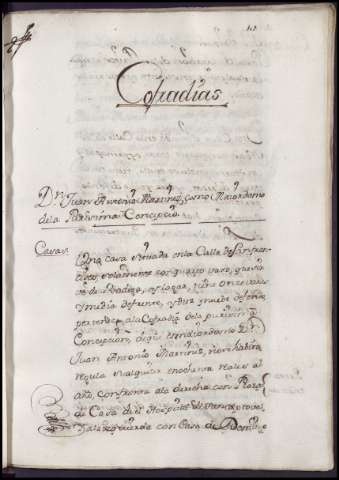 Cofradías
Dn Juan Antonio Martinez, como Maiordomo
de la Purisima Concepcion
Casas
Una casa situada en la Calle de San Fran-
cisco, solamente con quarto vaxo,
de Bodega, y
y media de frente, y diez y nuebe de fondo
pertenece a la Cofradia de la purisima
Concepcion, de que es maiordomo Dn
Juan Antonio Martinez, no se habita,
regula su alquiler en ochenta reales al
año, confronta a la derecha con
de Casa de el Hospital de
y a la izquierda con Casa de Domingo